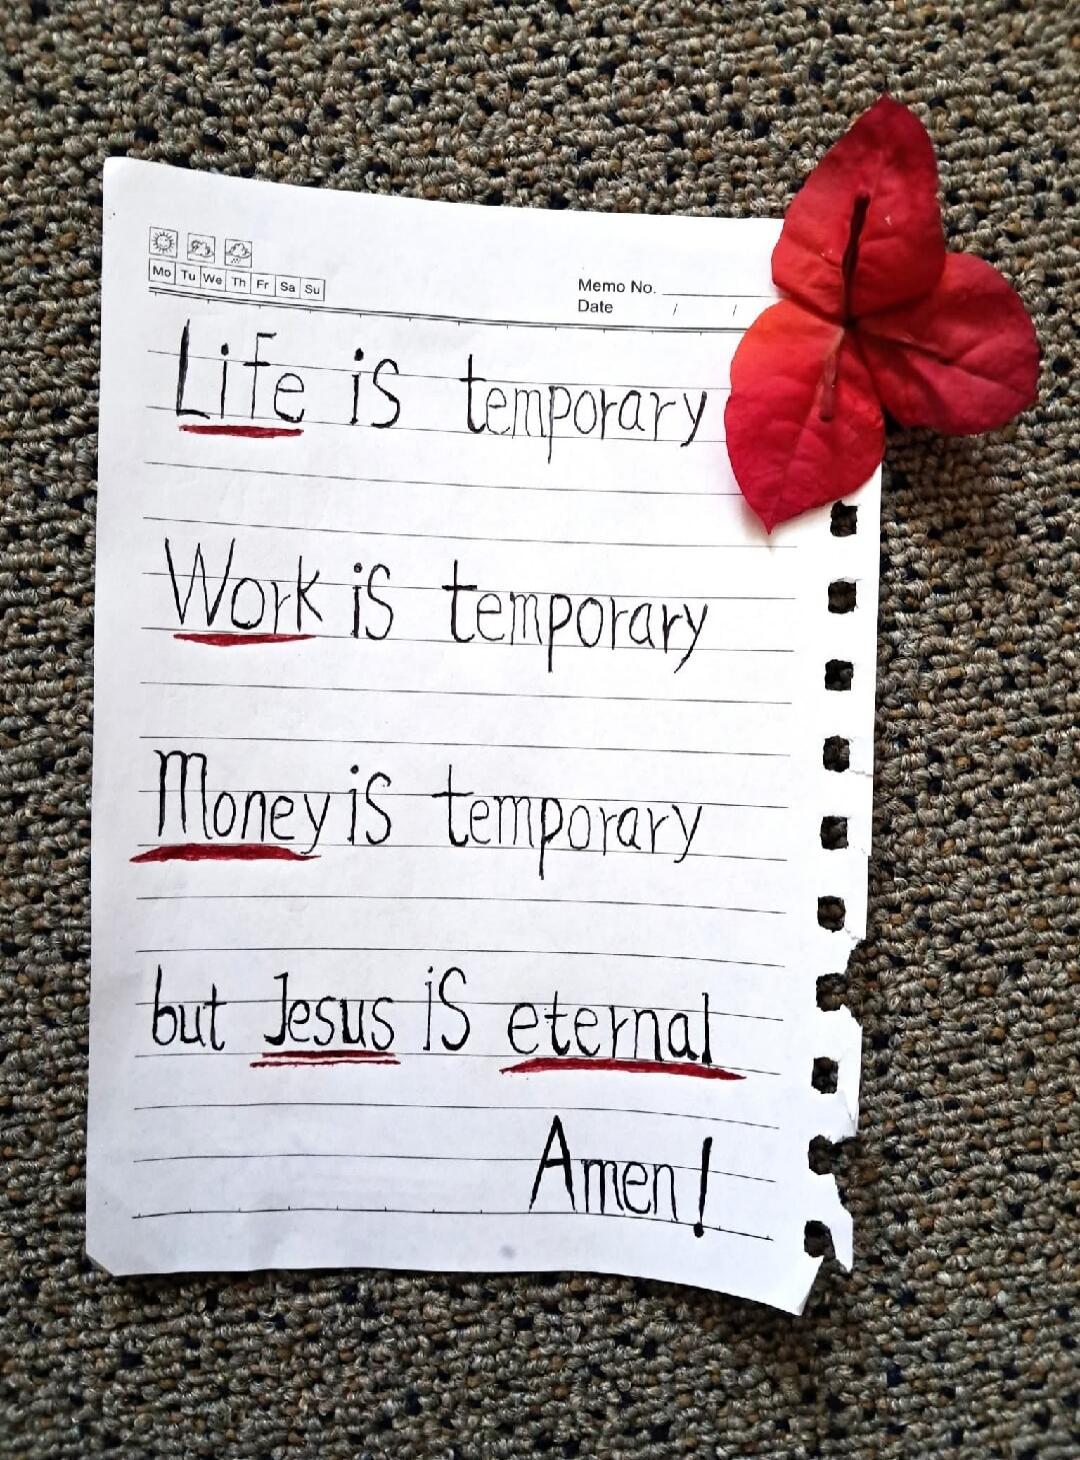 Mo Tu We Th Fr Sa Su
Memo No.
Date / /
Life is temporary
Work is temporary
Money is temporary
but Jesus is eternal
Amen!